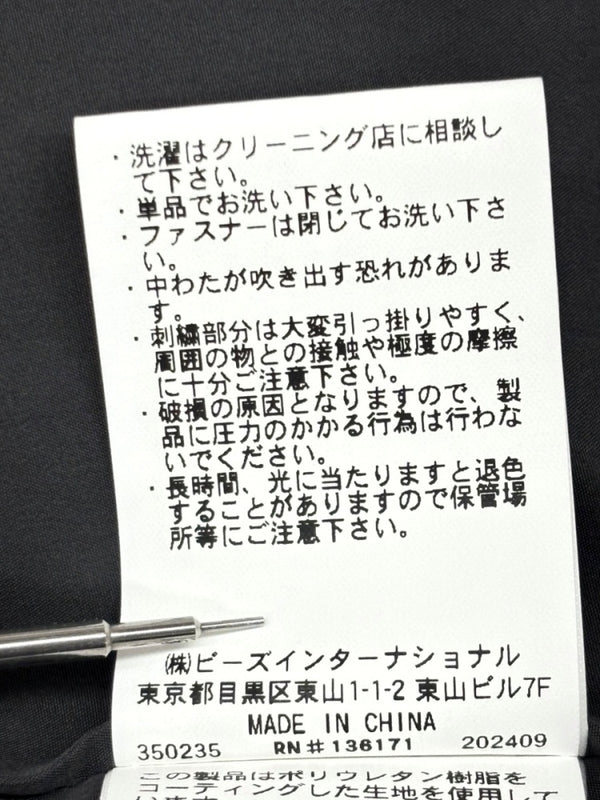 ・洗濯はクリーニング店に相談し
て下さい。
・単品でお洗い下さい。
・ファスナーは閉じてお洗い下さ
い。
・中わたが吹き出す恐れがありま
す。
・刺繍部分は大変引っ掛りやすく、
周囲の物との接触や極度の摩擦
に十分ご注意下さい。
・破損の原因となりますので、製
品に圧力のかかる行為は行わな
いでください。
・長時間、光に当たりますと退色
することがありますので保管場
所等にご注意下さい。
㈱ビーズインターナショナル
東京都目黒区東山1-1-2 東山ビル7F
MADE IN CHINA
350235 RN# 136171 202409
この製品はポリウレタン樹脂を
コーティングした生地を使用して
います